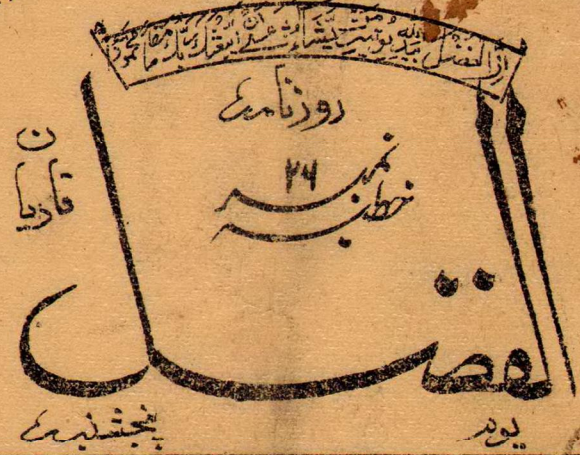 ان الفضل بید اللہ یؤتیہ من یشاء عسیٰ ان یبعثک ربک مقاما محمودا
روزنامہ
قادیان
خطبہ نمبر ۲۶
الفضل
یوم پنجشنبہ